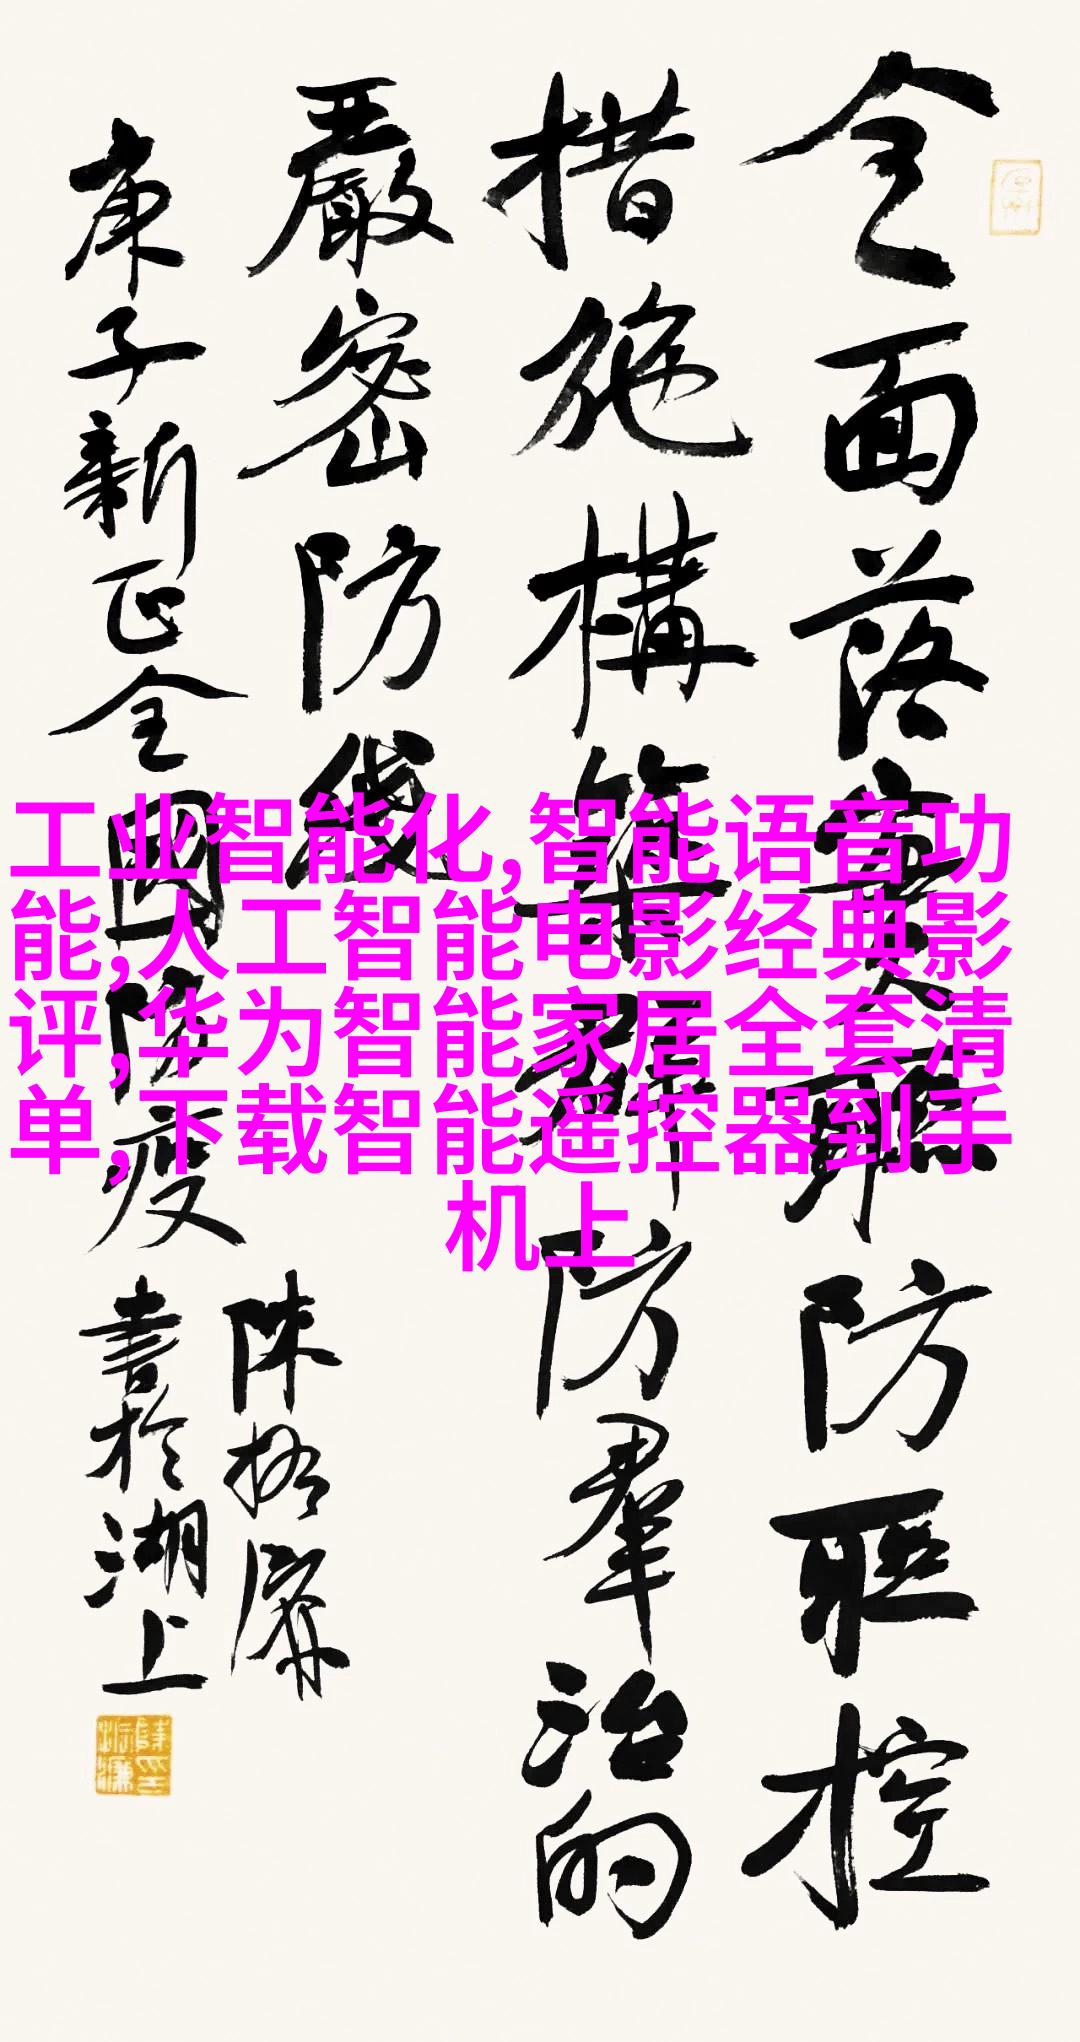 全面落實聯防聯控
措施構築群防羣治的
嚴密防綫
庚子新正全國防疫
陳振濂
書於湖上
工业智能化,智能语音功
能,人工智能电影经典影
评,华为智能家居全套清
单,下载智能遥控器到手
机上